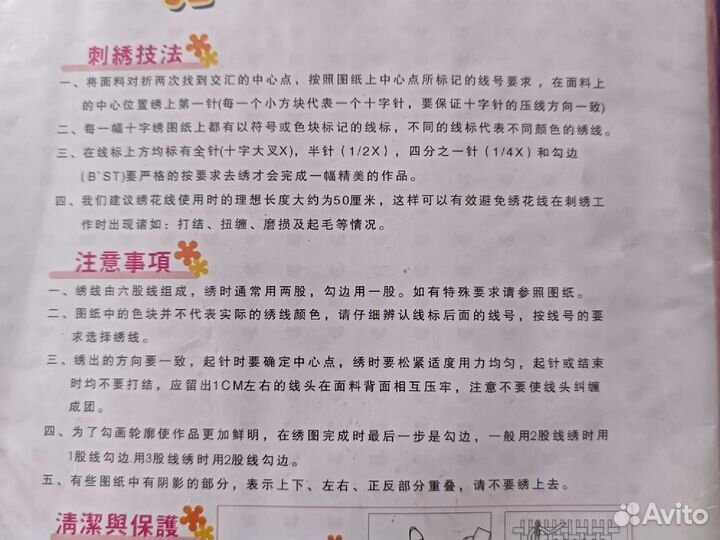 刺綉技法
一、将面料对折两次找到交汇的中心点，按照图纸上中心点所标记的线号要求，在面料上
的中心位置绣上第一针(每一个小方块代表一个十字针，要保证十字针的压线方向一致)
二、每一幅十字绣图纸上都有以符号或色块标记的线标，不同的线标代表不同颜色的绣线。
三、在线标上方均标有全针(十字大叉X)，半针（1/2X），四分之一针（1/4X）和勾边
（B`ST)要严格的按要求去绣才会完成一幅精美的作品。
四、我们建议绣花线使用时的理想长度大约为50厘米，这样可以有效避免绣花线在刺绣工
作时出现诸如：打结、扭缠、磨损及起毛等情况。
注意事項
一、绣线由六股线组成，绣时通常用两股，勾边用一股。如有特殊要求请参照图纸。
二、图纸中的色块并不代表实际的绣线颜色，请仔细辨认线标后面的线号，按线号的要
求选择绣线。
三、绣出的方向要一致，起针时要确定中心点，绣时要松紧适度用力均匀，起针或结束
时均不要打结，应留出1CM左右的线头在面料背面相互压牢，注意不要使线头纠缠
成团。
四、为了勾画轮廓使作品更加鲜明，在绣图完成时最后一步是勾边，一般用2股线绣时用
1股线勾边.用3股线绣时用2股线勾边。
五、有些图纸中有阴影的部分，表示上下、左右、正反部分重叠，请不要绣上去。
清潔與保護
Avito